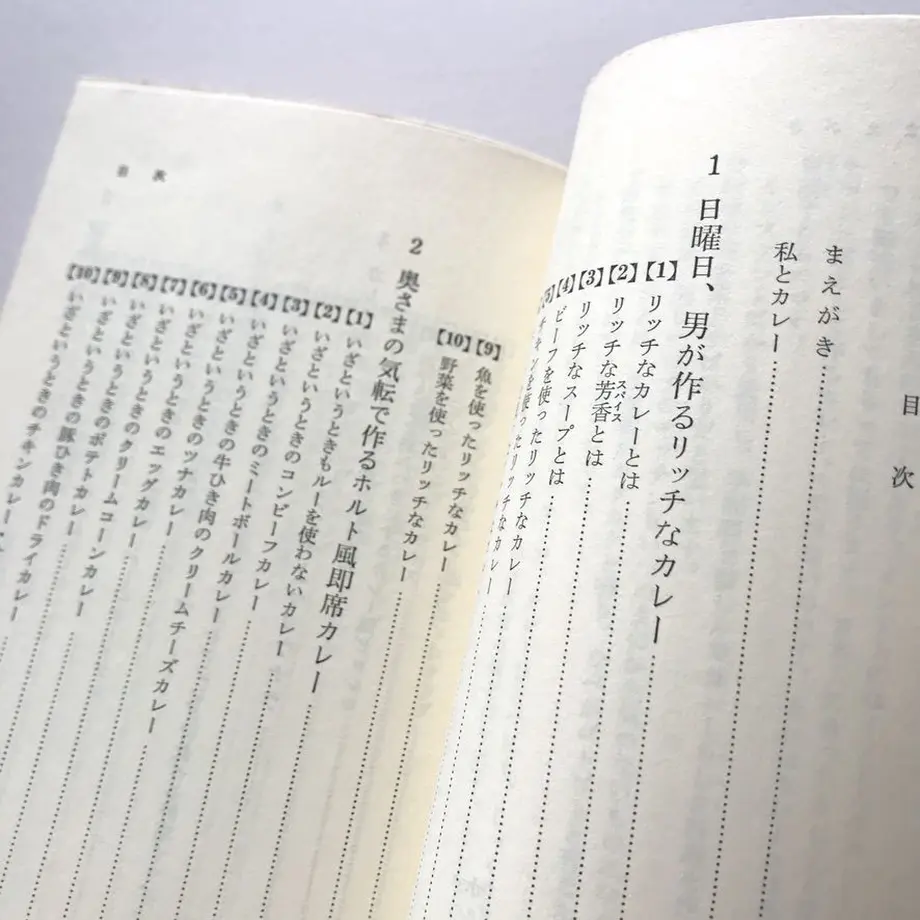 目次
まえがき……
私とカレー……
1 日曜日、男が作るリッチなカレー……
【1】リッチなカレーとは……
【2】リッチな芳香とは……
スパイス
【3】リッチなスープとは……
【4】ビーフを使ったリッチなカレー……
【5】チキンを使ったリッチなカレー……
目次
【9】魚を使ったリッチなカレー……
【10】野菜を使ったリッチなカレー……
2 奥さまの気転で作るホルト風即席カレー……
【1】いざというときもルーを使わないカレー……
【2】いざというときのコンビーフカレー……
【3】いざというときのミートボールカレー……
【4】いざというときの牛ひき肉のクリームチーズカレー……
【5】いざというときのツナカレー……
【6】いざというときのエッグカレー……
【7】いざというときのクリームコーンカレー……
【8】いざというときのポテトカレー……
【9】いざというときの豚ひき肉のドライカレー……
【10】いざというときのチキンカレー……